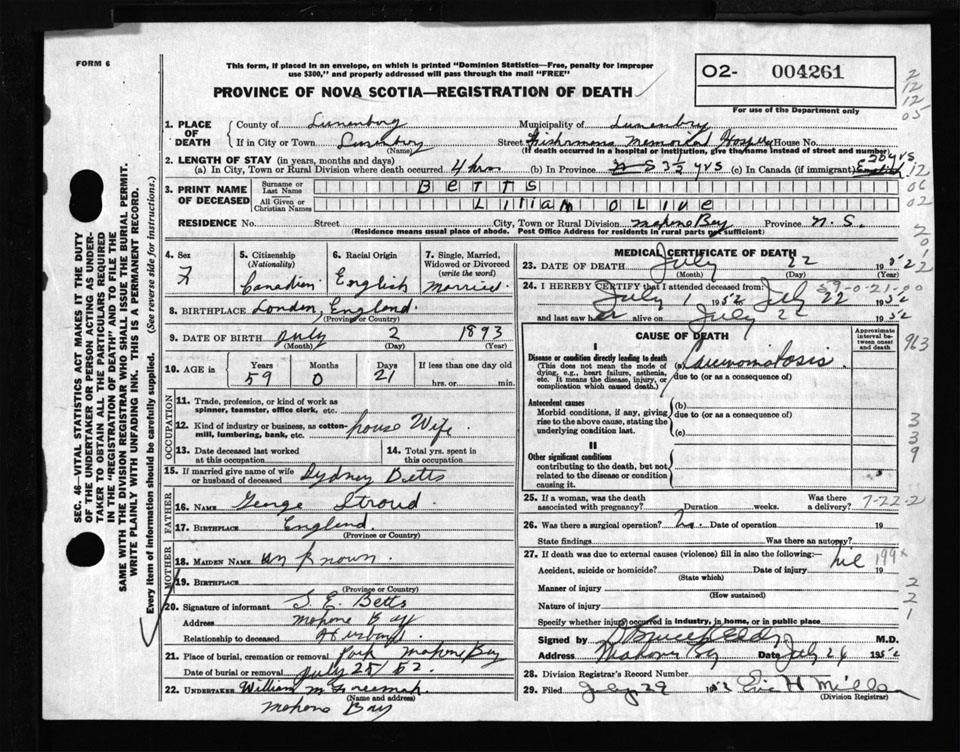 FORM 6
This form, if placed in an envelope, on which is printed "Dominion Statistics—Free, penalty for improper
use $300," and properly addressed will pass through the mail "FREE"
PROVINCE OF NOVA SCOTIA—REGISTRATION OF DEATH
O2- 004261
For use of the Department only
2
12
12
05
1. PLACE OF DEATH
County of Lunenburg Municipality of Lunenburg
If in City or Town Lunenburg Street Fishermens Memorial Hospital House No.
(Name) (If death occurred in a hospital or institution, give the name instead of street and number)
2. LENGTH OF STAY (in years, months and days)
(a) In City, Town or Rural Division where death occurred 4 hrs (b) In Province N S 3½ yrs (c) In Canada (if immigrant) yrs
12
3. PRINT NAME OF DECEASED
Surname or Last Name Betts
06
All Given or Christian Names Lilliam Olive
02
RESIDENCE No. Street City, Town or Rural Division Mahone Bay Province N. S.
(Residence means usual place of abode. Post Office Address for residents in rural parts not sufficient)
4. Sex F
5. Citizenship (Nationality) Canadien
6. Racial Origin English
7. Single, Married, Widowed or Divorced (write the word) Married
8. BIRTHPLACE London, England
(Province or Country)
9. DATE OF BIRTH July 2 1893
(Month) (Day) (Year)
10. AGE in Years 59 Months 0 Days 21 If less than one day old hrs. or min.
OCCUPATION
11. Trade, profession, or kind of work as
spinner, teamster, office clerk, etc.
12. Kind of industry or business, as cotton-
mill, lumbering, bank, etc. House Wife
13. Date deceased last worked
at this occupation
14. Total yrs. spent in
this occupation
15. If married give name of wife
or husband of deceased Sydney Betts
FATHER
16. NAME George Stroud
17. BIRTHPLACE England
(Province or Country)
MOTHER
18. MAIDEN NAME Un Known
19. BIRTHPLACE
(Province or Country)
20. Signature of informant S. E. Betts
Address Mahone Bay
Relationship to deceased Husband
21. Place of burial, cremation or removal Park Mahone Bay
Date of burial or removal July 25/52.
22. UNDERTAKER William
(Name and address)
Mahone Bay
MEDICAL CERTIFICATE OF DEATH
23. DATE OF DEATH July 22 1952
(Month) (Day)
24. I HEREBY CERTIFY that I attended deceased from:
59-0-21-00
July 1 1952 July 22 1952
and last saw her alive on July 22 1952
CAUSE OF DEATH
Approximate interval between onset and death
963
I
Disease or condition directly leading to death
(This does not mean the mode of
dying, e.g., heart failure, asthenia,
etc. It means the disease, injury, or
complication which caused death.)
(a) Carcinomatosis
due to (or as a consequence of)
Antecedent causes
Morbid conditions, if any, giving
rise to the above cause, stating the
underlying condition last.
(b)
due to (or as a consequence of)
(c)
3
3
9
II
Other significant conditions
contributing to the death, but not
related to the disease or condition
causing it.
25. If a woman, was the death
associated with pregnancy? Duration weeks. Was there
a delivery? 7-22-2
26. Was there a surgical operation? No. Date of operation 19
State findings Was there an autopsy?
27. If death was due to external causes (violence) fill in also the following:—
Accident, suicide or homicide? Date of injury 19
(State which)
nil 199x
Manner of injury
(How sustained)
Nature of injury
2
2
1
Specify whether injury occurred in industry, in home, or in public place
Signed by M.D.
Address Mahone Bay Date July 24 1952
28. Division Registrar's Record Number
29. Filed July 29 1952 Eric H
(Division Registrar)
SEC. 46—VITAL STATISTICS ACT MAKES IT THE DUTY
OF THE UNDERTAKER OR PERSON ACTING AS UNDER-
TAKER TO OBTAIN ALL THE PARTICULARS REQUIRED
IN THE "REGISTRATION OF DEATH" AND TO FILE THE
SAME WITH THE DIVISION REGISTRAR WHO SHALL ISSUE THE BURIAL PERMIT.
WRITE PLAINLY WITH UNFADING INK. THIS IS A PERMANENT RECORD.
Every item of information should be carefully supplied. (See reverse side for instructions.)